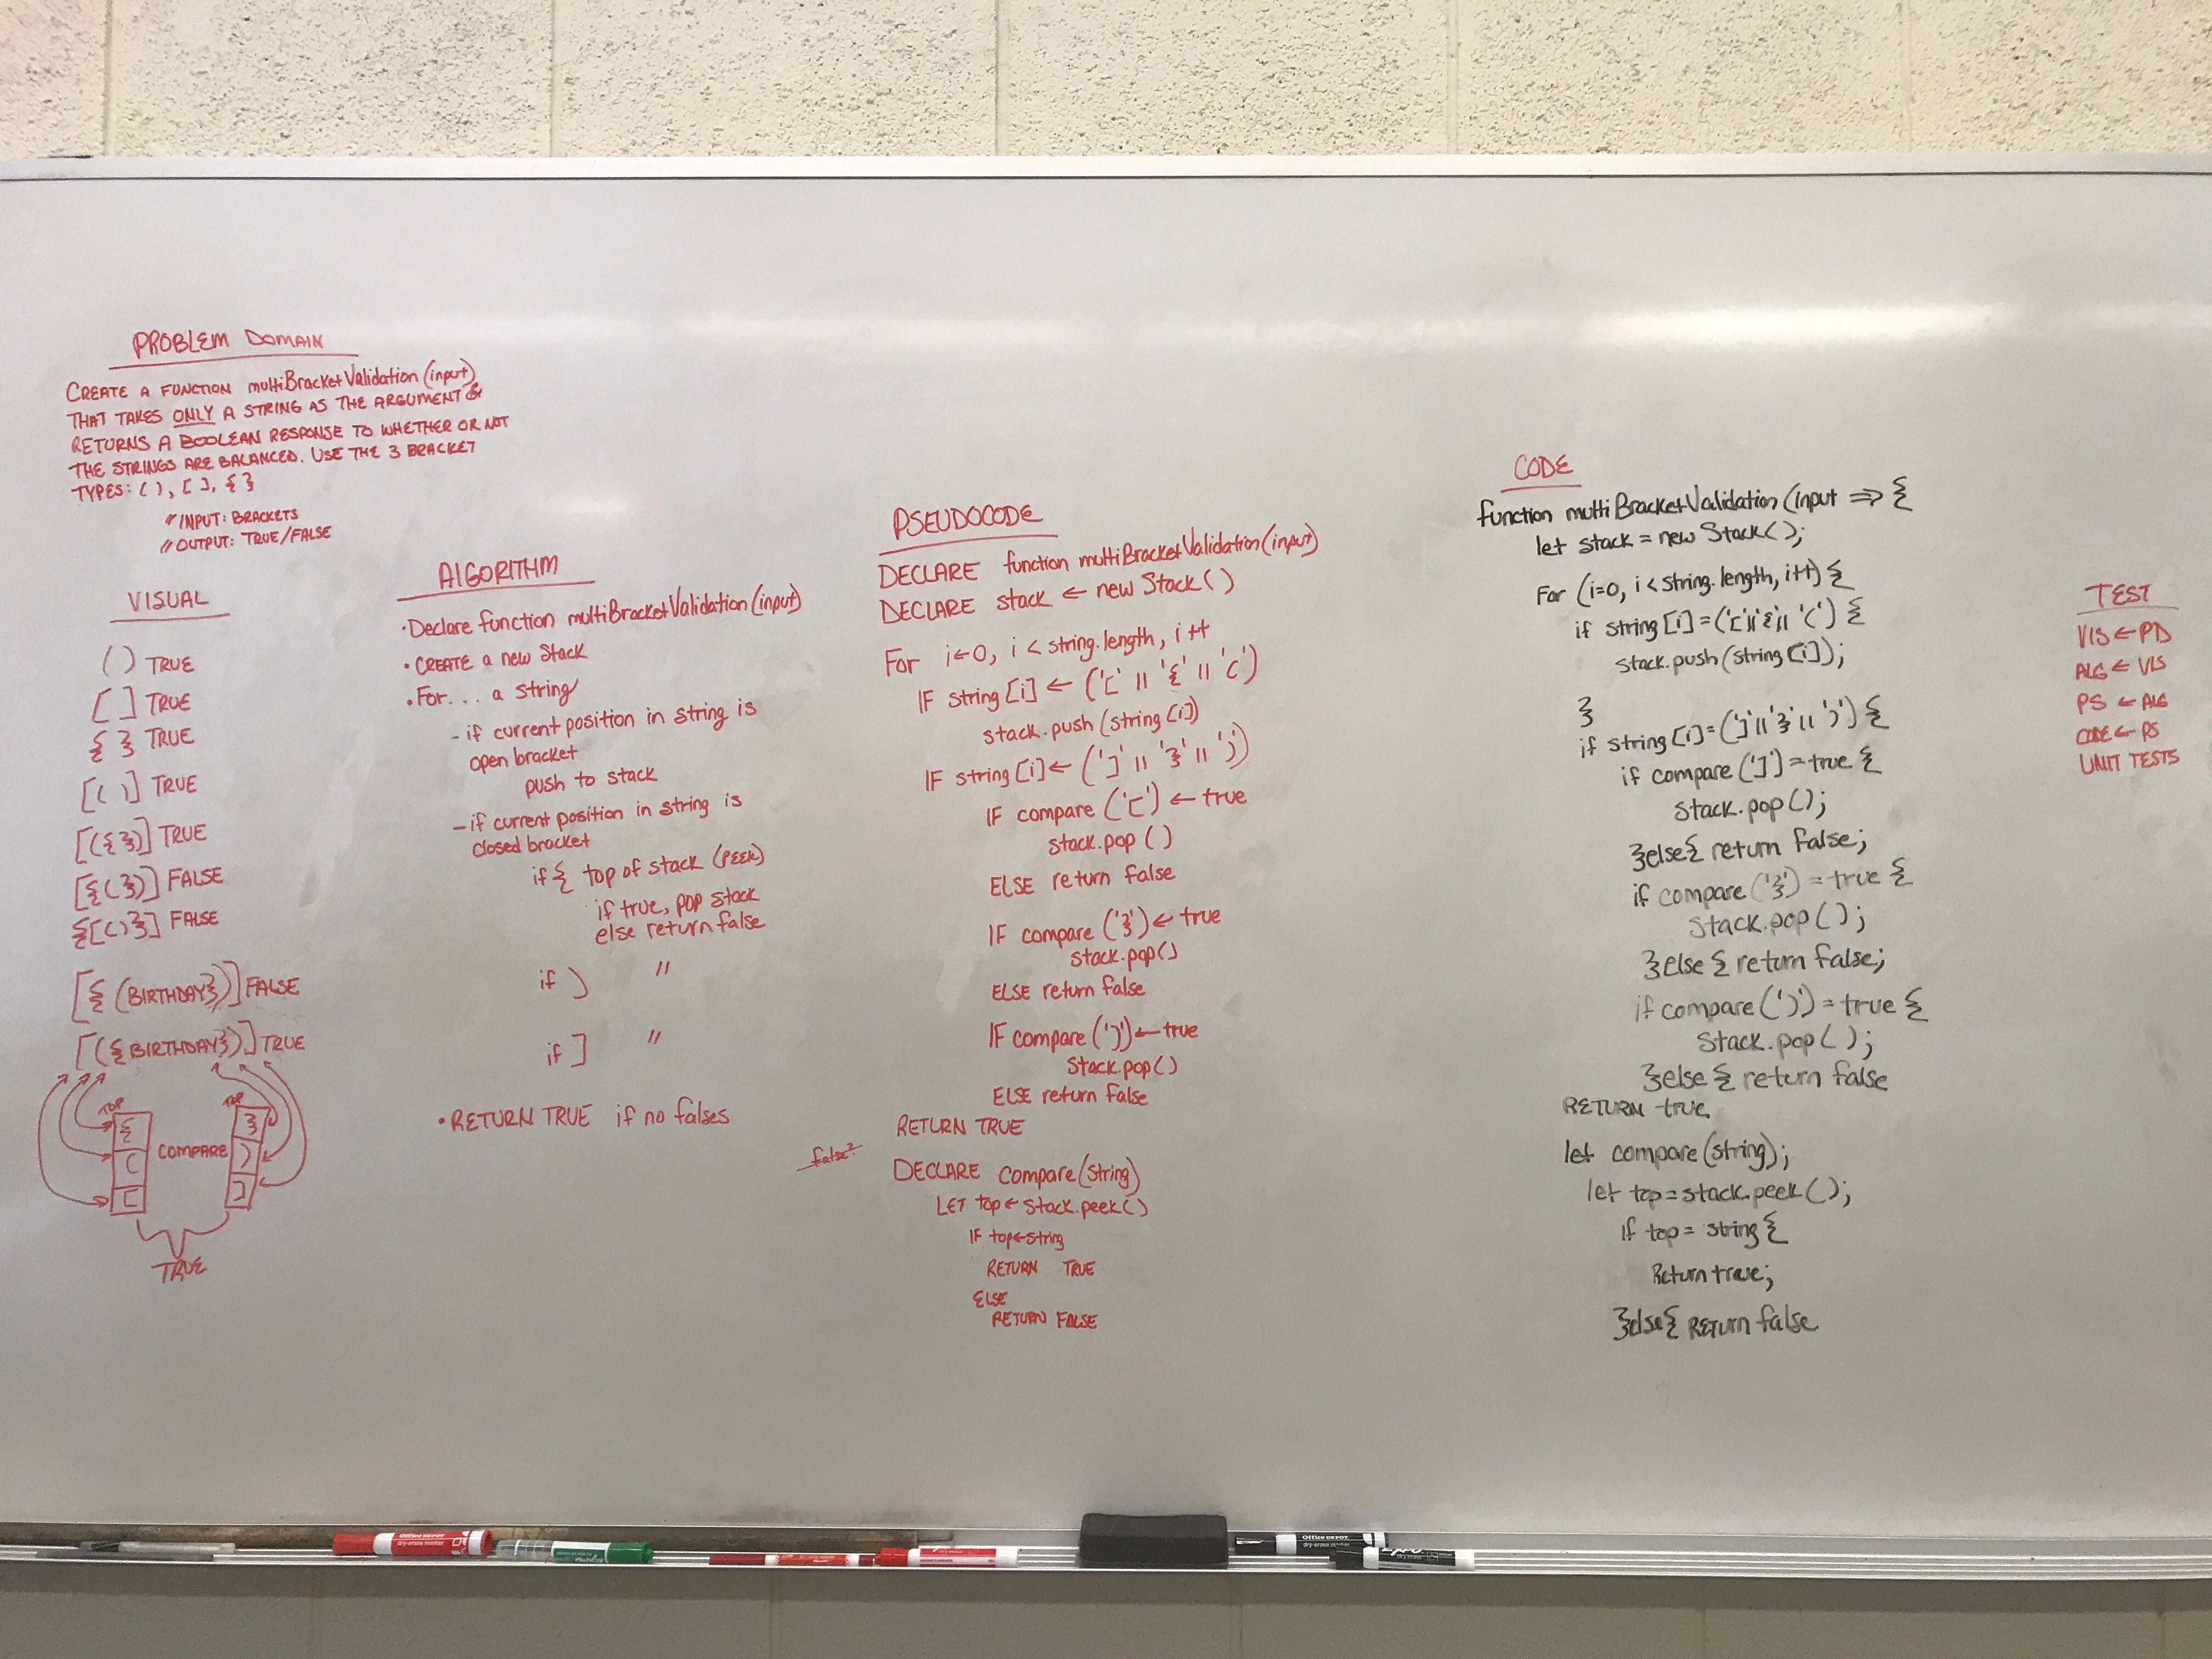 PROBLEM DOMAIN
CREATE A FUNCTION multiBracketValidation(input)
THAT TAKES ONLY A STRING AS THE ARGUMENT &
RETURNS A BOOLEAN RESPONSE TO WHETHER OR NOT
THE STRINGS ARE BALANCED. USE THE 3 BRACKET
TYPES: ( ), [ ], { }
// INPUT: BRACKETS
// OUTPUT: TRUE/FALSE
VISUAL
( ) TRUE
[ ] TRUE
{ } TRUE
[( )] TRUE
[({})] TRUE
[{(})] FALSE
{[()}] FALSE
[{(BIRTHDAY})] FALSE
[({BIRTHDAY})] TRUE
TOP TOP
{ }
( COMPARE )
[ ]
TRUE
ALGORITHM
• Declare function multiBracketValidation(input)
• CREATE a new Stack
• For... a string
- if current position in string is
open bracket
push to stack
- if current position in string is
closed bracket
if { top of stack (PEEK)
if true, pop stack
else return false
if ) "
if ] "
• RETURN TRUE if no falses
PSEUDOCODE
DECLARE function multiBracketValidation(input)
DECLARE stack ← new Stack()
For i←0, i < string.length, i++
IF string[i] ← ('[' || '{' || '(')
stack.push(string[i])
IF string[i] ← (']' || '}' || ')')
IF compare('[') ← true
stack.pop()
ELSE return false
IF compare('}') ← true
stack.pop()
ELSE return false
IF compare(')') ← true
Stack.pop()
ELSE return false
RETURN TRUE
false?
DECLARE compare(string)
LET top ← stack.peek()
IF top←string
RETURN TRUE
ELSE
RETURN FALSE
CODE
function multiBracketValidation(input => {
let stack = new Stack();
For (i=0, i < string.length, i++) {
if string[i] = ('['||'{'|| '(') {
stack.push(string[i]);
}
if string[i] = (']'||'}'|| ')') {
if compare(']') = true {
stack.pop();
}else{ return false;
if compare('}') = true {
stack.pop();
}else{ return false;
if compare(')') = true {
stack.pop();
}else{ return false
RETURN true
let compare(string);
let top = stack.peek();
if top = string {
Return true;
}else{ RETURN false
TEST
VIS ← PD
ALG ← VIS
PS ← ALG
CODE ← PS
UNIT TESTS
Office DEPOT
dry-erase marker
Office DEPOT